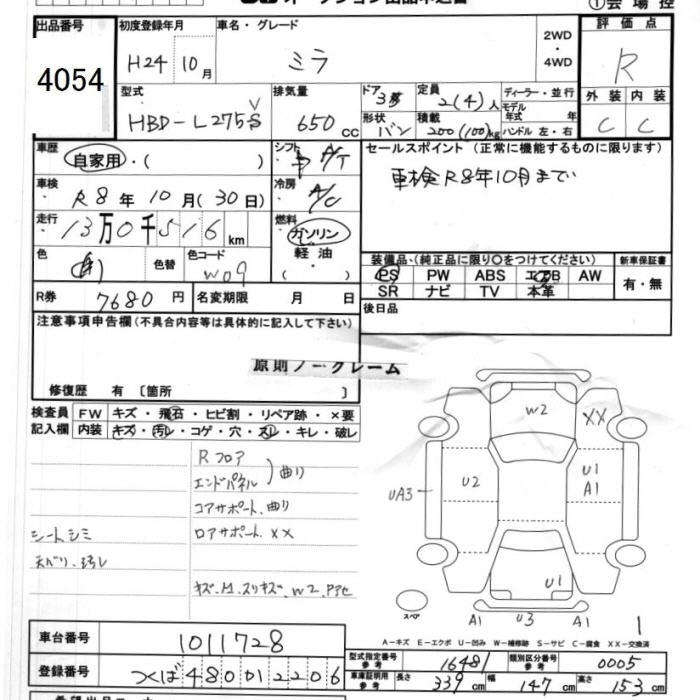 ①会場控
出品番号 4054
初度登録年月 H24 10月
車名・グレード ミラ
2WD・4WD
評価点 R
型式 HBD-L275V
排気量 650cc
ドア 3
形状 バン
定員 2(4)人
積載 200(100)kg
ディーラー・並行
モデル年式 年式
ハンドル 左・右
外装 C
内装 C
車歴 自家用・( )
シフト A/T
セールスポイント (正常に機能するものに限ります)
車検R8年10月まで
車検 R8年10月(30日)
冷房 A/C
走行 13万0千516km
燃料 ガソリン
軽油
・( )
色 白
色替
色コード W09
装備品・(純正品に限り○をつけてください)
新車保証書
PS PW ABS エアB AW
SR ナビ TV 本革
有・無
R券 7680円
名変期限 月 日
後日品
注意事項申告欄(不具合内容等は具体的に記入して下さい)
原則ノークレーム
修復歴 有〔箇所 〕
検査員記入欄
FW キズ・飛石・ヒビ割・リペア跡・×要
内装 キズ・汚レ・コゲ・穴・スレ・キレ・破レ
Rフロア
エンドパネル )曲り
コアサポート、曲り
シートシミ
ロアサポート、XX
天バリ、汚レ
キズ、M、スリキズ、W2、Pアセ
W2
XX
U2
U1
A1
UA3
U1
スペア
A1
U3
A1
1
A-キズ E-エクボ U-凹み W-補修跡 S-サビ C-腐食 XX-交換済
車台番号 1011728
型式指定番号 参考 16481
類別区分番号 参考 0005
登録番号 つくば480い2206
車庫証明用 参考 長さ 339cm 幅 147cm 高さ 153cm